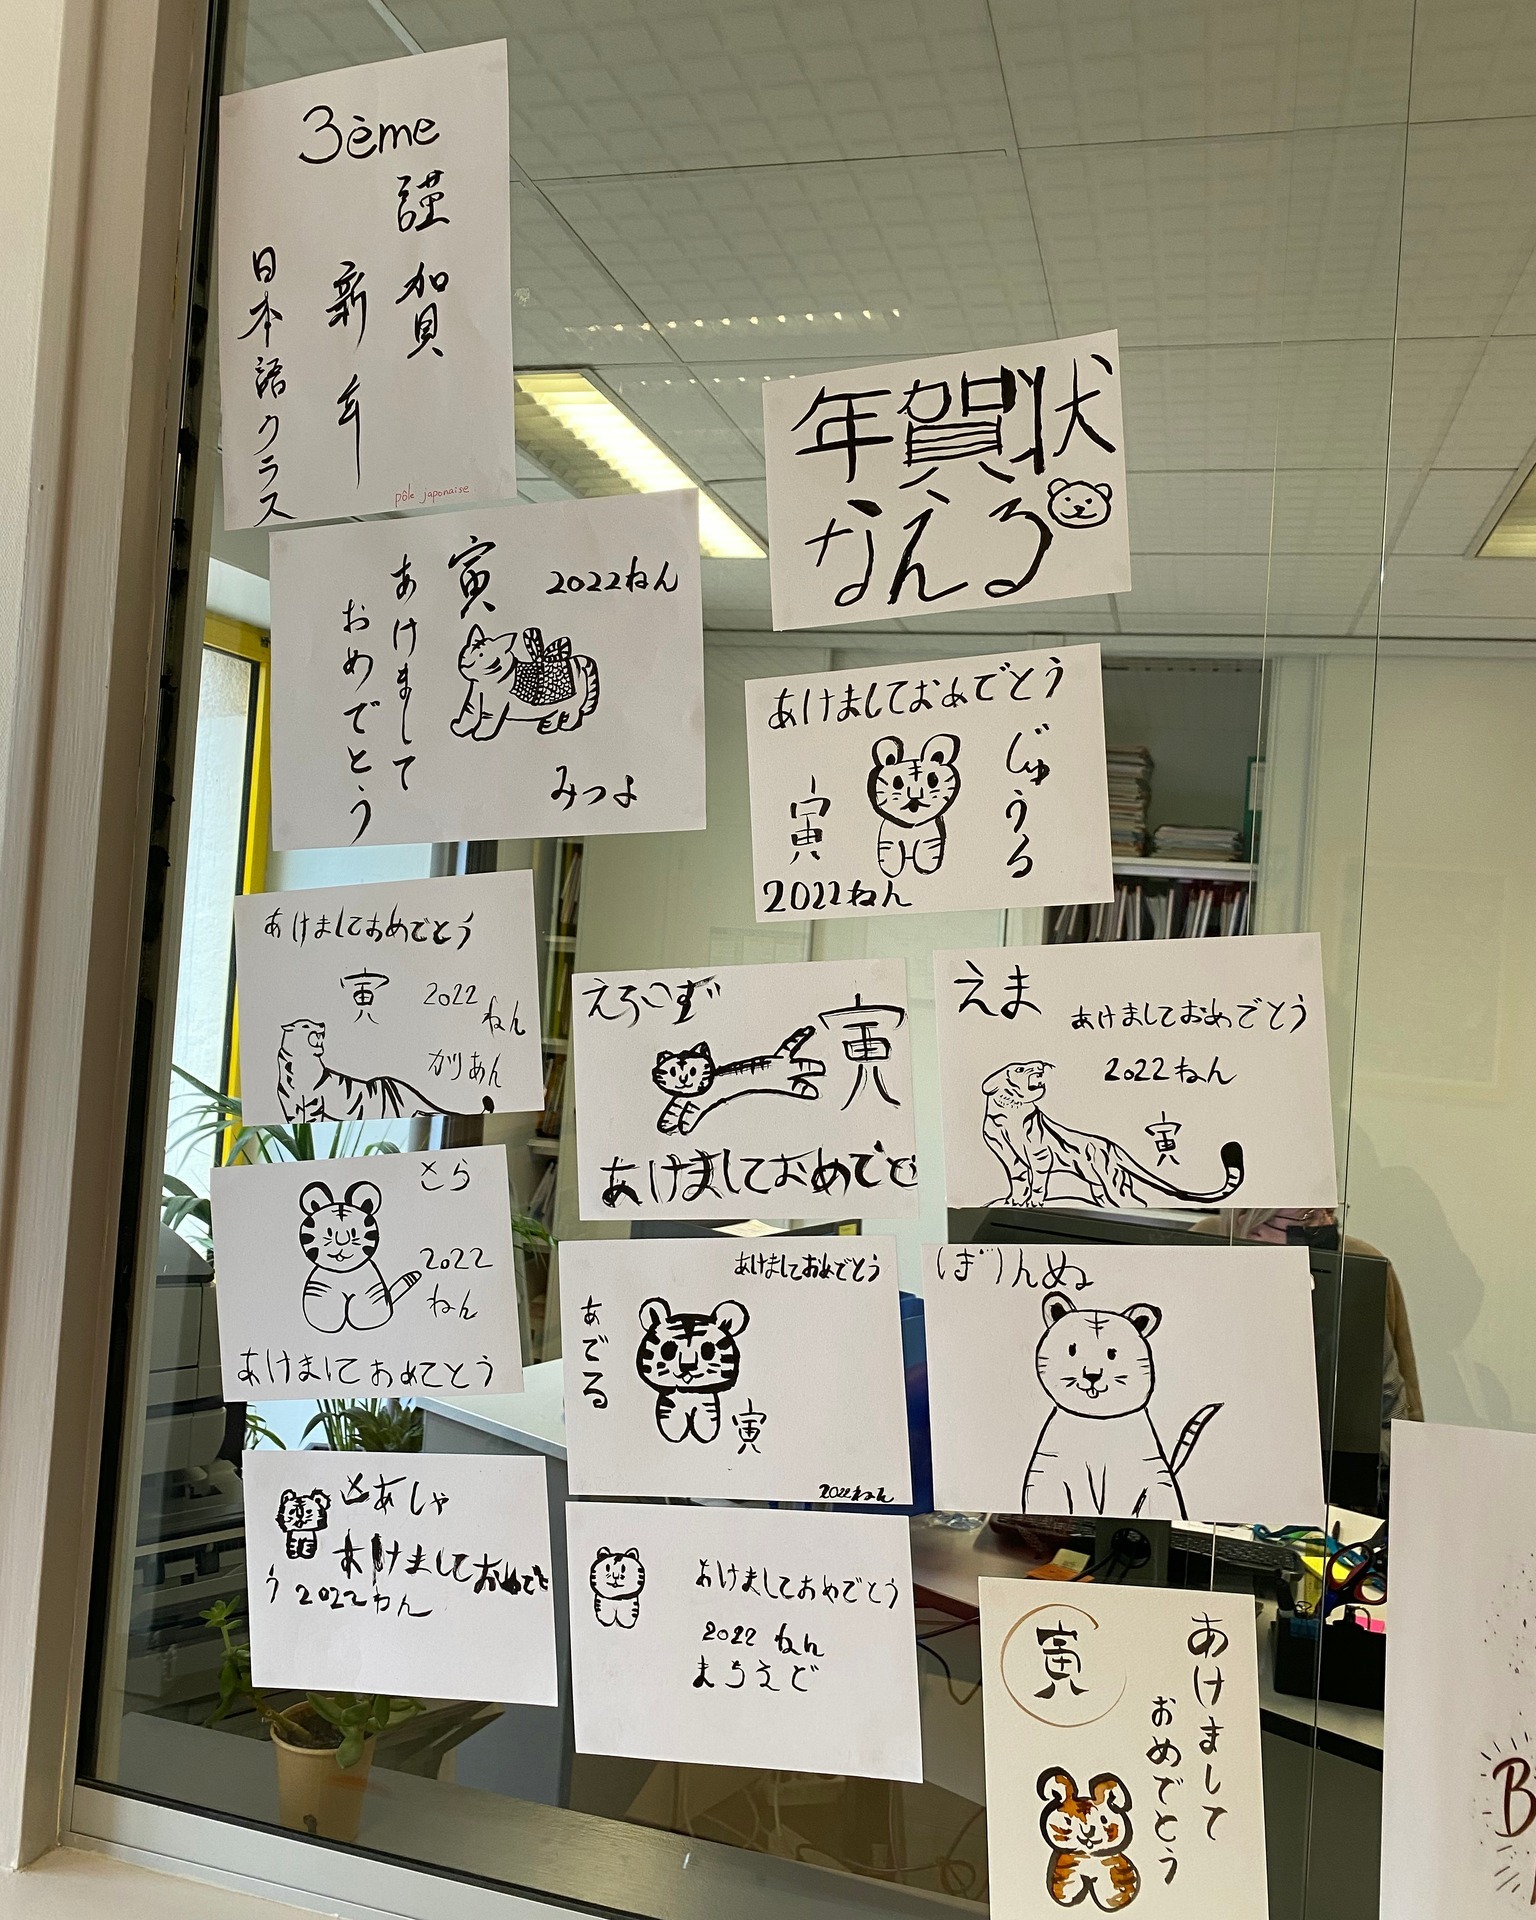 3ème
謹賀
新年
日本語クラス
pôle japonaise
年賀状
なえる
寅
2022ねん
あけまして
おめでとう
みつよ
あけましておめでとう
じゅうる
寅
2022ねん
あけましておめでとう
寅
2022
ねん
がりあん
えろいず
寅
あけましておめでと
えま
あけましておめでとう
2022ねん
寅
さら
2022
ねん
あけましておめてとう
あけましておめでとう
あでる
寅
2022ねん
ぽりんぬ
さあしゃ
あけましておめでと
う 2022ねん
あけましておめでとう
2022 ねん
まちえど
寅
あけまして
おめでとう
B